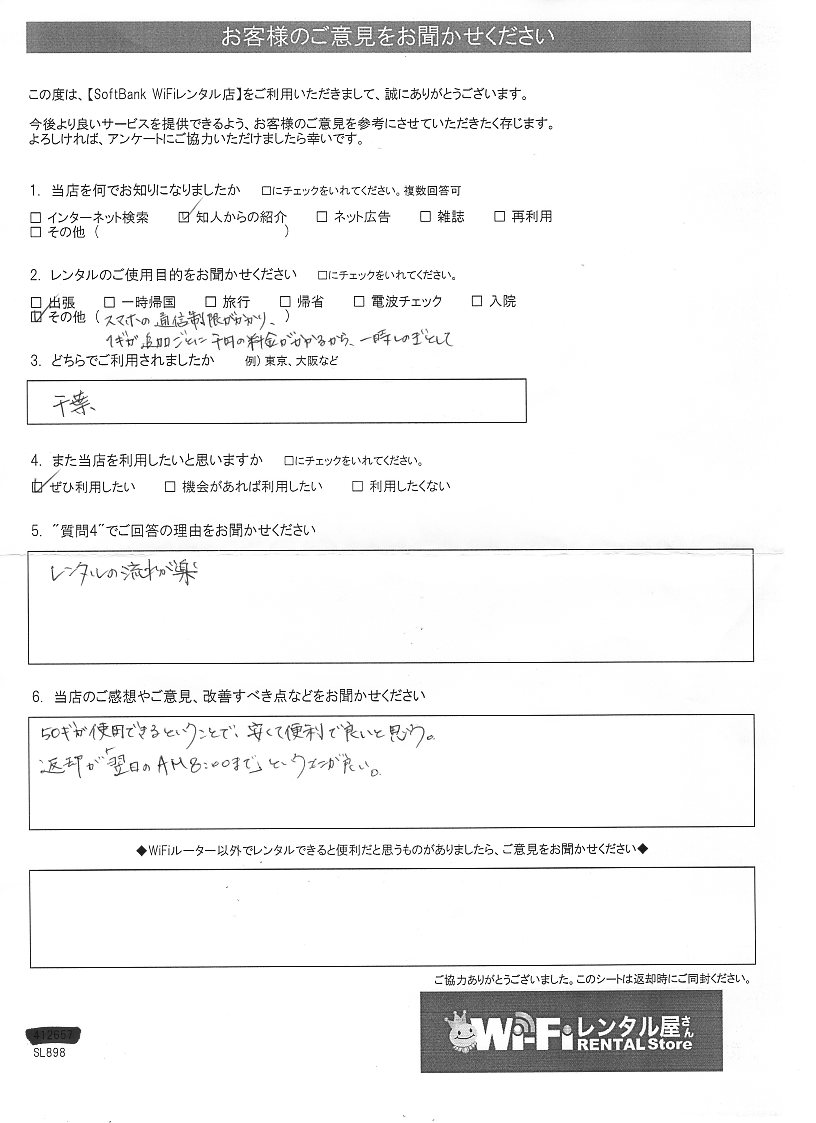 お客様のご意見をお聞かせください
この度は、【SoftBank WiFiレンタル店】をご利用いただきまして、誠にありがとうございます。
今後より良いサービスを提供できるよう、お客様のご意見を参考にさせていただきたく存じます。
よろしければ、アンケートにご協力いただけましたら幸いです。
1. 当店を何でお知りになりましたか □にチェックをいれてください。複数回答可
□ インターネット検索 ☑ 知人からの紹介 □ ネット広告 □ 雑誌 □ 再利用
□ その他 ( )
2. レンタルのご使用目的をお聞かせください □にチェックをいれてください。
□ 出張 □ 一時帰国 □ 旅行 □ 帰省 □ 電波チェック □ 入院
☑ その他 (スマホの通信制限がかかり、)
1ギガ追加ごとに千円の料金がかかるから、一時しのぎとして
3. どちらでご利用されましたか 例) 東京、大阪など
千葉
4. また当店を利用したいと思いますか □にチェックをいれてください。
☑ ぜひ利用したい □ 機会があれば利用したい □ 利用したくない
5. "質問4"でご回答の理由をお聞かせください
レンタルの流れが楽
6. 当店のご感想やご意見、改善すべき点などをお聞かせください
50ギガ使用できるということで、安くて便利で良いと思う。
返却が「翌日のAM8:00まで」という所が良い。
◆WiFiルーター以外でレンタルできると便利だと思うものがありましたら、ご意見をお聞かせください◆
ご協力ありがとうございました。このシートは返却時にご同封ください。
412657
SL898
Wi-Fiレンタル屋さん
RENTAL Store